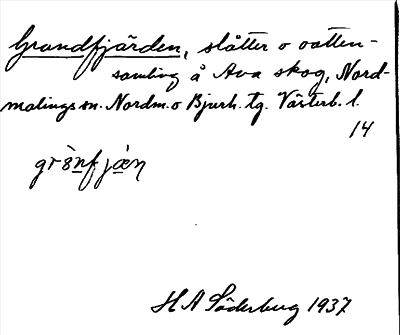 Grundfjärden, slåtter o vatten-
samling å Ava skog, Nord-
malings sn. Nordm. o Bjurh. tg. Västerb. l.
14
H A Söderberg 1937